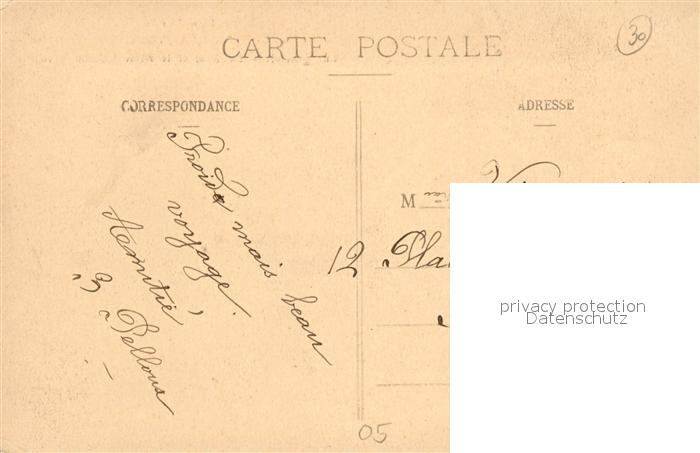 CARTE POSTALE
30
CORRESPONDANCE
ADRESSE
Froid mais beau
voyage,
Amitié
M
12 Pla
05
privacy protection
Datenschutz